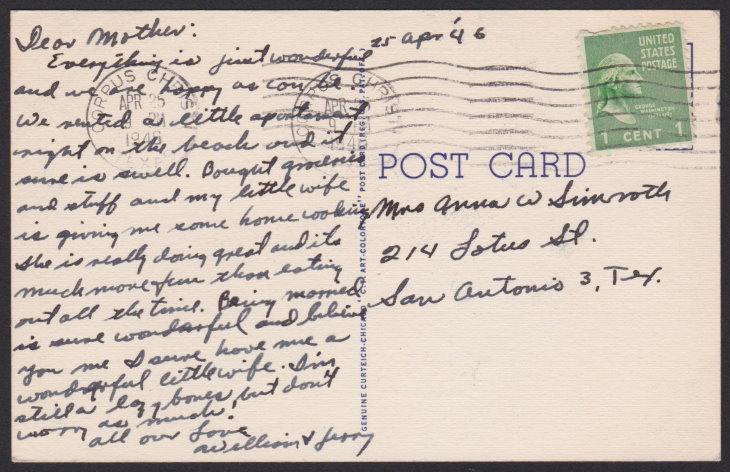 Dear Mother:
Everything is just wonderful
and we are happy as can be.
We rented a little apartment
right on the beach and it
sure is swell. Bought groceries
and stuff and my little wife
is giving me some home cooking
She is really doing great and its
much more fun than eating
out all the time. Being married
is sure wonderful and believe
you me I sure have me a
wonderful little wife. I'm
still a lazy bones, but don't
worry as much.
all our Love
William & Jerry
25 Apr '46
CORPUS CHRISTI
APR 25
1946
TEXAS
UNITED
STATES
POSTAGE
GEORGE
WASHINGTON
1 CENT 1
POST CARD
Mrs Anna W Simroth
214 Lotus St.
San Antonio 3, Tex.
GENUINE CURTEICH-CHICAGO "C.T. ART-COLORTONE" POST CARD (REG. U.S. PAT. OFF.)